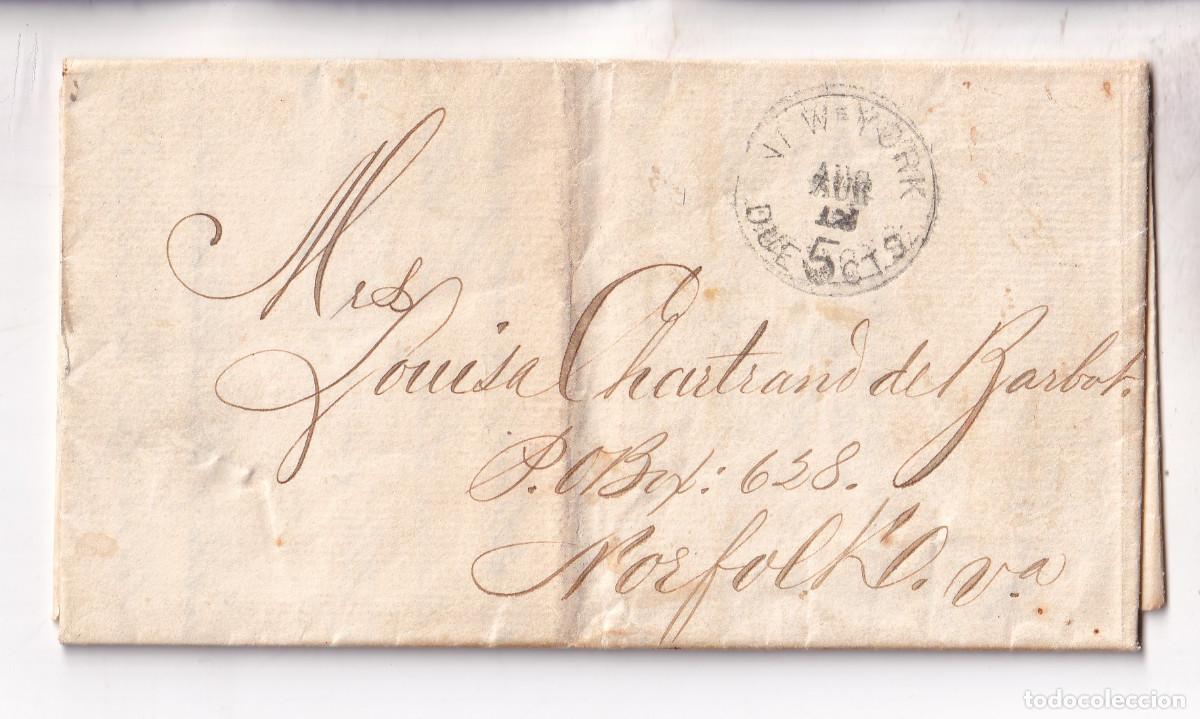 NEW-YORK
AUG
12
DUE 5 CTS
Mrs
Louisa Chartrand de Barbot.
P.O Box: 628.
Norfolk. Va
todocoleccion